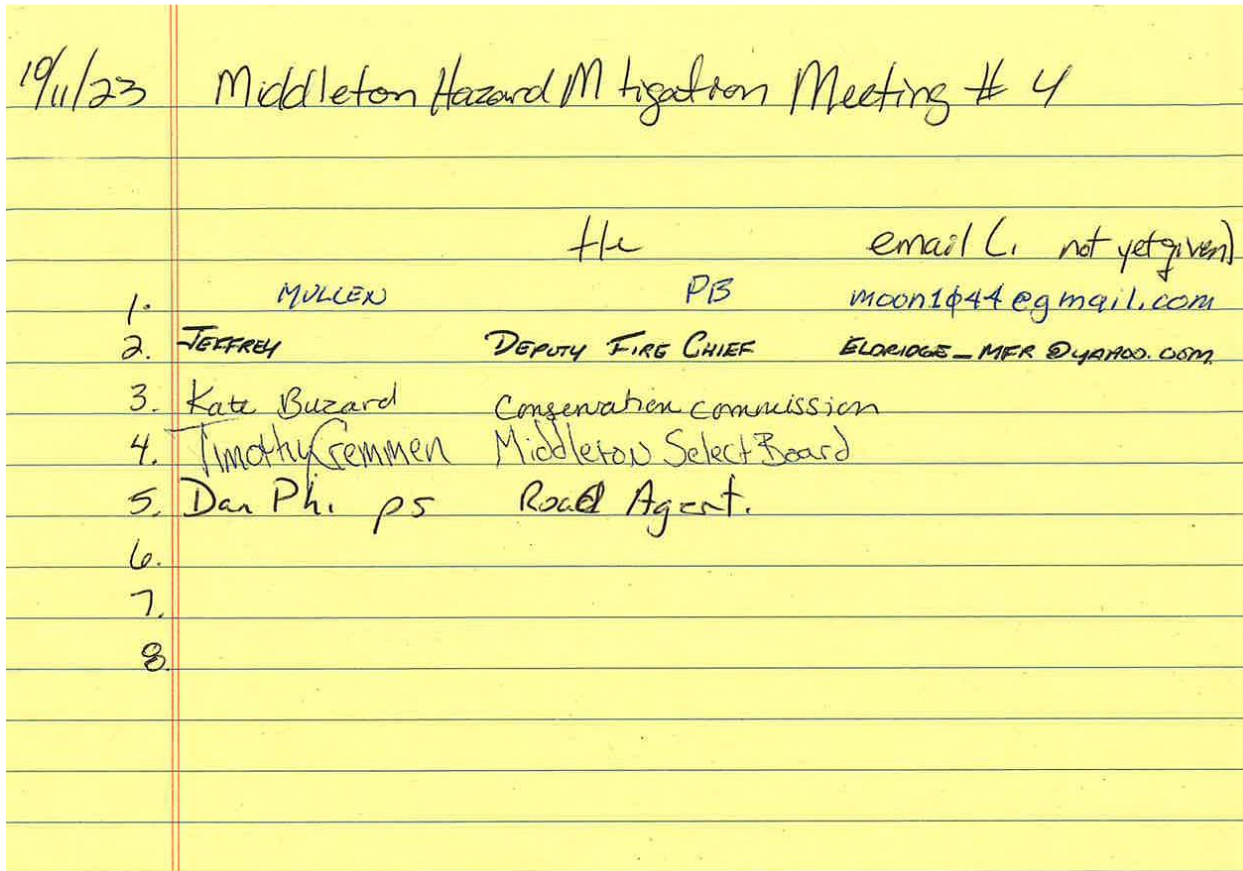 10/11/23 Middleton Hazard M tigation Meeting # 4
tle email (i not yet given)
1. MULLEN PB moon1044@gmail.com
2. JEFFREY DEPUTY FIRE CHIEF ELDRIDGE_MFR@YAHOO.COM
3. Kate Buzard Conservation commission
4. Timothy Cremmen Middleton Select Board
5. Dan Ph. ps Road Agent.
6.
7.
8.